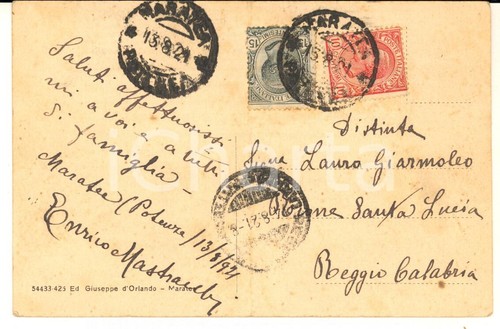 MARATEA
13.8.21
MARATEA
13.8.21
15
10
POSTE ITALIANE
Saluti affettuosissi
mi a voi e a tutti
di famiglia –
Maratea (Potenza) 13/8/921
Enrico
Distinta
Sig.na Laura Giarmoleo
Rione Santa Lucia
Reggio Calabria
8.21
iCharta
54433-425 Ed Giuseppe d'Orlando – Maratea